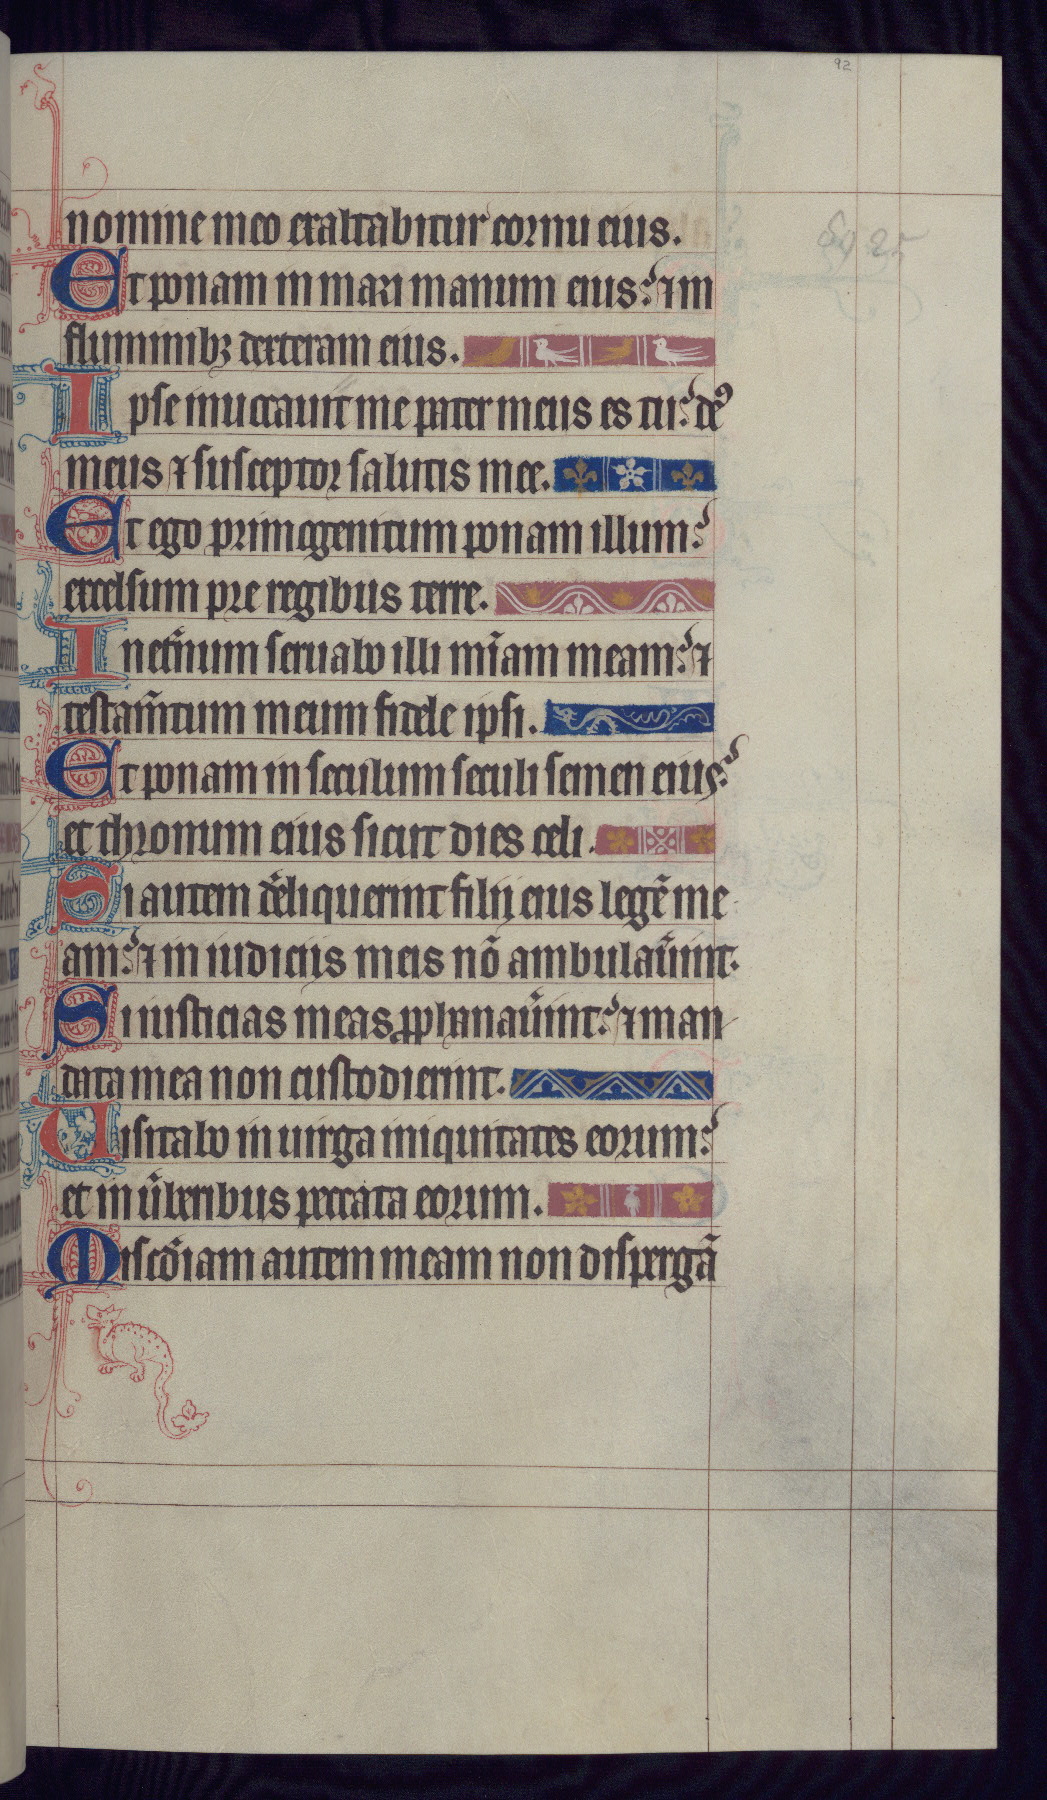 92
nomine meo exaltabitur cornu eius.
Et ponam in mari manum eius: ⁊ in
fluminibꝫ dexteram eius.
Ipse inuocauit me pater meus es tu: de᷒
meus ⁊ susceptor salutis mee.
Et ego primogenitum ponam illum:
excelsum pre regibus terre.
In et̉num seruabo illi mīam meam: ⁊
testam̄tum meum fidele ipsi.
Et ponam in seculum seculi semen eius:
et thronum eius sicut dies celi.
Si autem dẻliquerint filij eius legē me
am: ⁊ in iudiciis meis nō ambulaủint.
Si iusticias meas ꝓphanaủint: ⁊ man
data mea non custodierint.
Uisitabo in uirga iniquitates eorum:
et in ủberibus peccata eorum.
Misc̉diam autem meam non dispergā